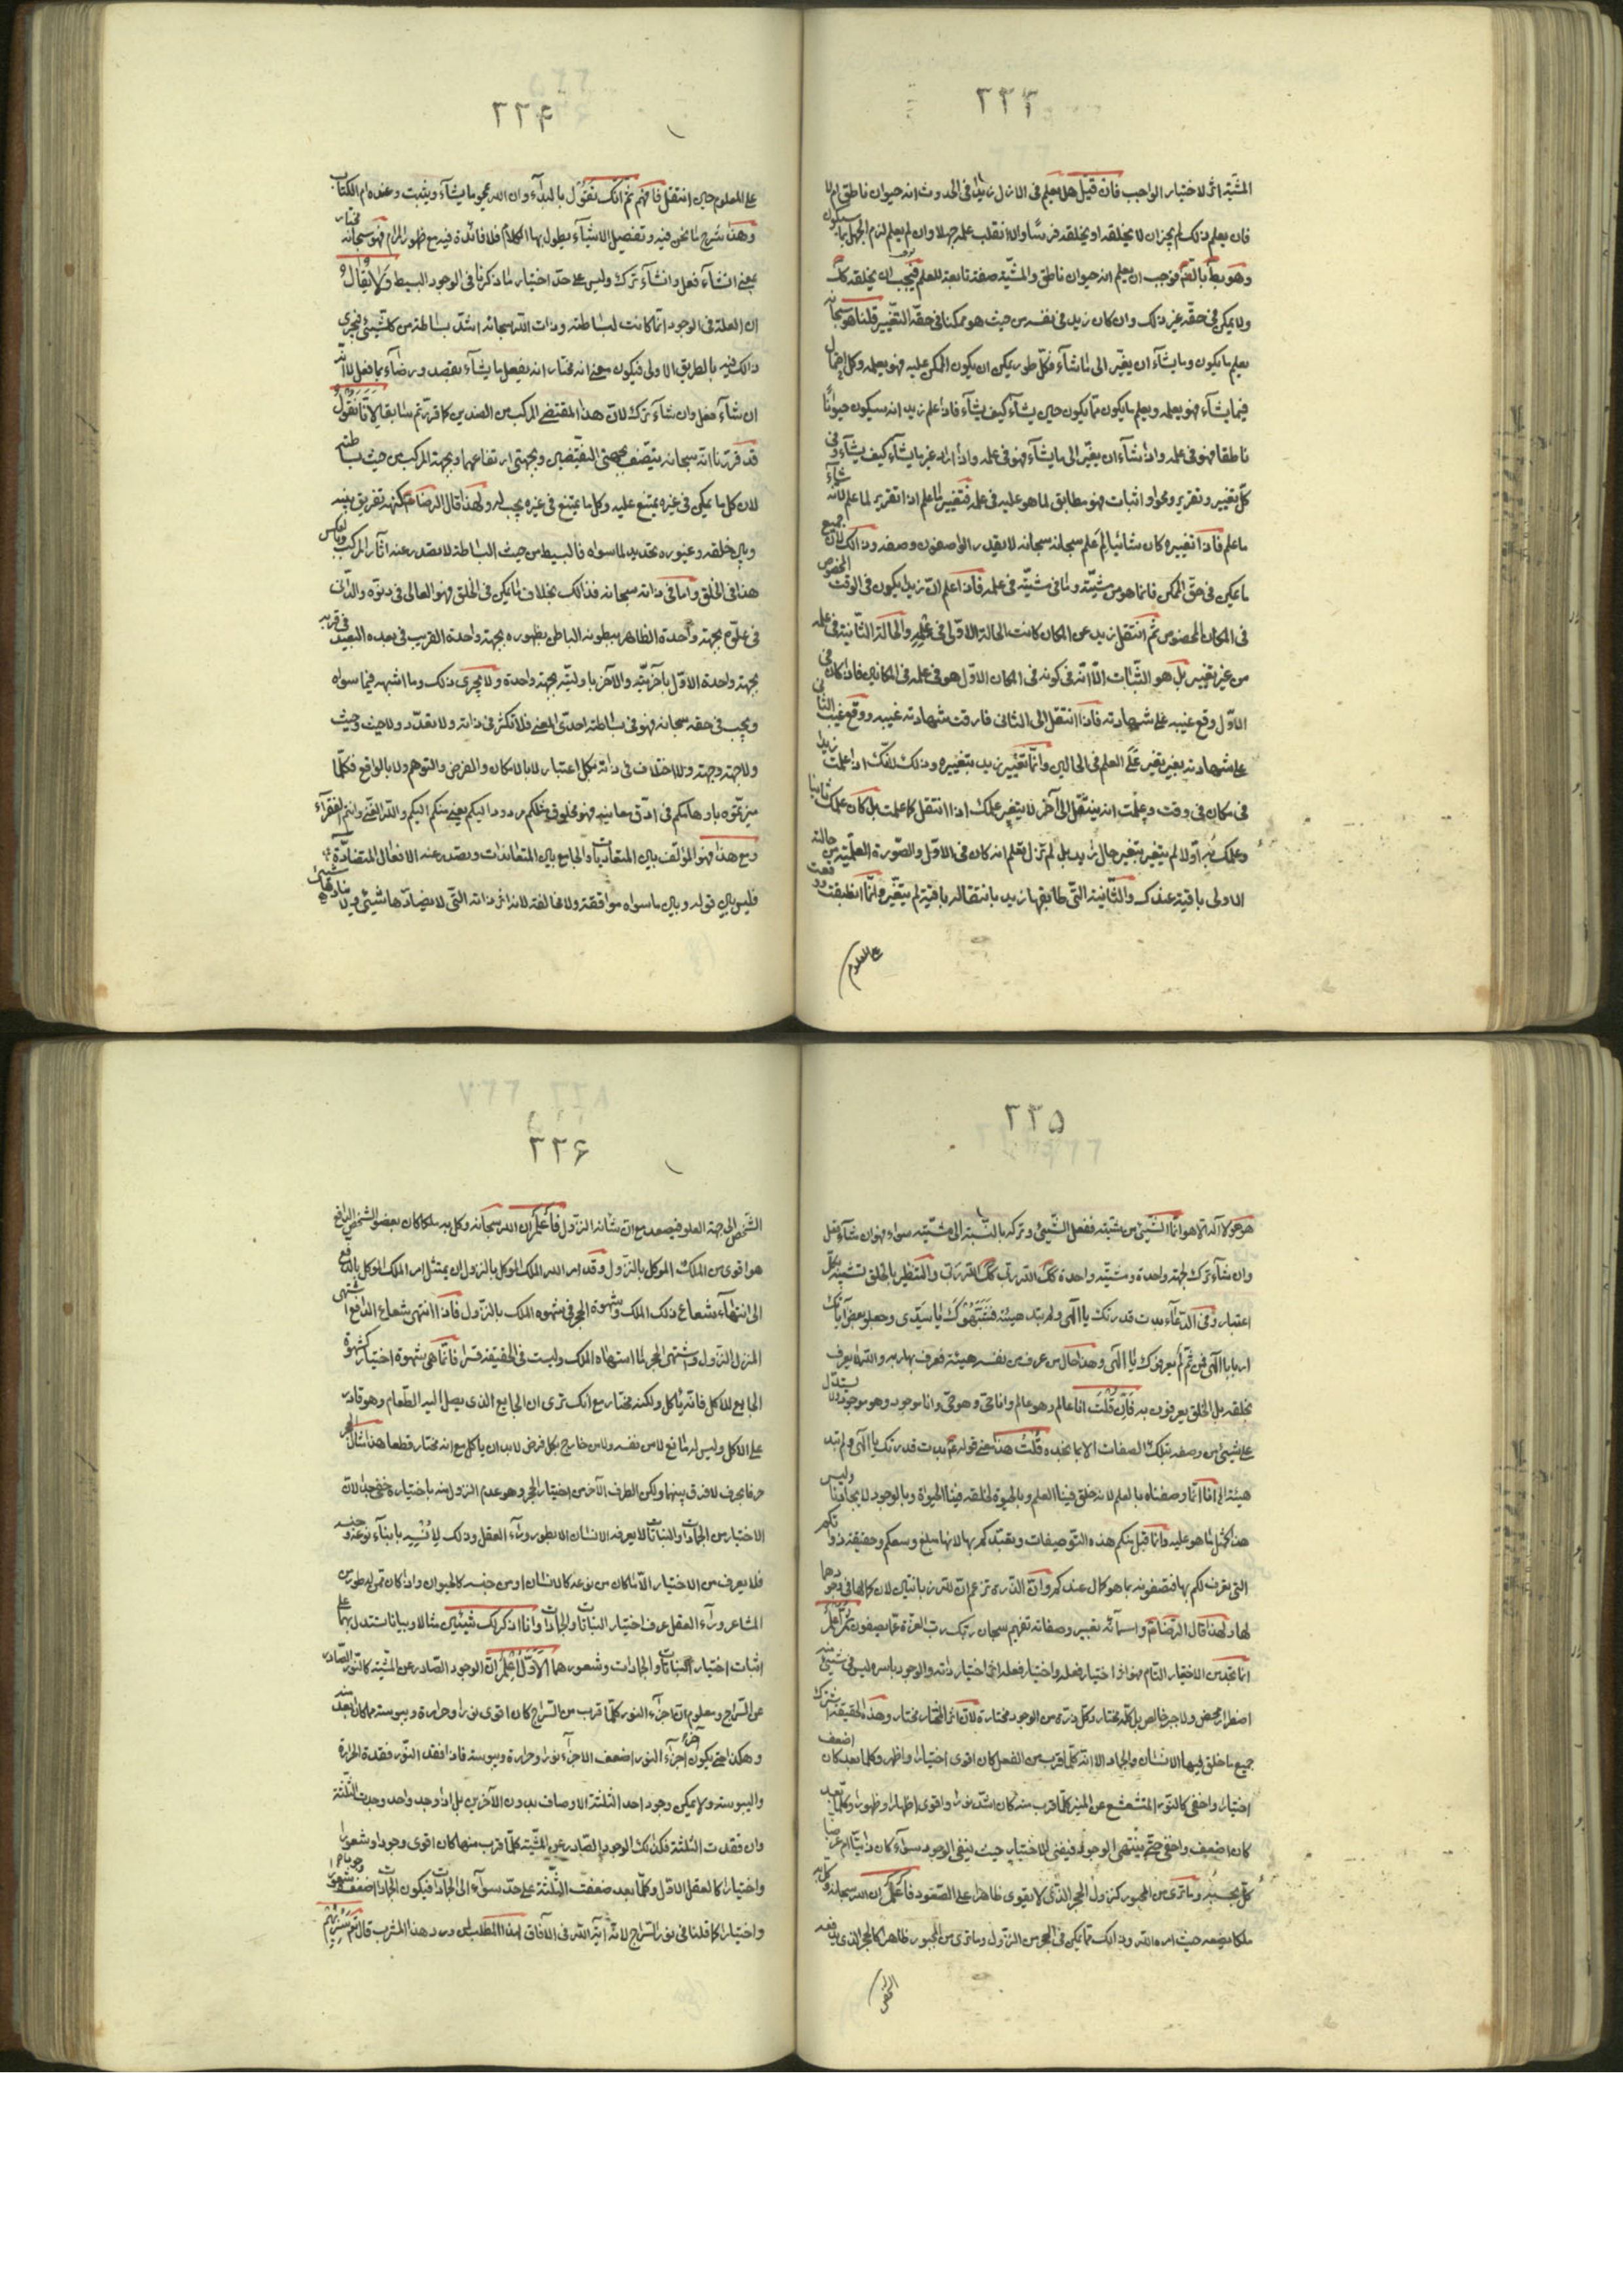 ٢٣٣
المشيّة اثر لاختيار الواجب فان قيل هل يعلم في الازل زيدا في الحدوث انه حيوان ناطق ام لا
فان يعلم ذلك لم يجز ان لا يخلقه او يخلقه فرسًا والا انقلب علمه جهلا وان لم يعلم لزم الجهل بما سيكون
وهو بط بالضرورة فوجب ان يعلم انه حيوان ناطق والمشيّة صفة تابعة للعلم فيجب ان يخلقه كك
ولا يمكن في حقّه غير ذلك وان كان زيد في نفسه من حيث هو ممكنا في حقّه التغيير قلنا هو سبحانه
يعلم ما يكون وما يشآء ان يغيّر الى ما شآء فكلّ طور يمكن ان يكون الممكن عليه فهو يعلمه وكل احتمال
فيما يشآء فهو يعلمه ويعلم ما يكون ممّا يكون حين يشآء كيف يشآء فاذا علم زيد انه سيكون حيوانًا
ناطقا فهو في علمه واذا شآء ان يغيّر الى ما يشآء فهو في علمه واذا اراد غير ما يشآء كيف يشآء وفي
كلّ تغيير وتقرير ومحو او اثبات فهو مطابق لما هو عليه في علمه فتغيير ما علم اذا تقرير لما علم لانّه شآء
ما علم فاذا تغييره كان شائيا لم علم سبحانه سبحانه لا يقدر الواصفون وصفه وذالك لان جميع
ما يمكن في حقّ الممكن فانما هو من مشيّته وما في مشيّته في علمه فاذا علم انّ زيدا يكون في الوقت المخصوص
في المكان المخصوص ثم انتقل زيد عن المكان كانت الحالة الاولى في علمه والحالة الثانية في علمه
من غير تغيير بل هو الثابت الّا انّه في كونه في المكان الاوّل هو في علمه في المكانين فاذا كان في
الاوّل وقع غيبه على شهادته فاذا انتقل الى الثاني فارقت شهادته غيبه ووقع غيب الثاني
على شهادته بغير تغير على العلم في الحالين وانّما تغيير زيد بتغييره وذلك لانّك اذا علمت زيدا
في مكان في وقت وعلمت انه ينتقل الى آخر لا يتغير علمك اذا انتقل كما علمت بل كان علمك ثانيا
وعلمك به اوّلا لم يتغير بتغير حال زيد بل لم تزل تعلم انه كان في الاوّل والصورة العلميّة من حالته
الاولى باقية عندك والثانية التي طابقها زيد بانتقاله باقية لم يتغيّر وانّما انطبقت ووقعت
على المعلوم
٢٣۴
على المعلوم حين انتقل فافهم ثم انّك تقول بالبدآء وان الله يمحو ما يشآء ويثبت وعنده ام الكتاب
وهذا شرح ما نحن فيه وتفصيل الاشيآء يطول بها الكلام فلا فائدة فيه مع ظهور المرام فهو سبحانه مختار
بمعنى ان شآء فعل وان شآء ترك وليس على حدّ اختيار ما ذكرنا في الوجود البسيط ولا يقال
ان العلة في الوجود انّما كانت لبساطته وذات اللّه سبحانه اشدّ بساطة من كلّ شيئ فيجرى
ذالك فيه بالطريق الاولى فيكون معنى انه مختار انه يفعل ما يشآء بقصد ورضآء بما فعل لا انّه
ان شآء فعل وان شآء ترك لانّ هذا المقتضى المركب من الضدين كما قررتم سابقا لانّا نقول
قد قررنا انّه سبحانه يتّصف بجهتى النقيضين وبجهتى ارتفاعهما وبجهة المركب من حيث بساطته
لان كل ما يمكن في غيره يمتنع عليه وكل ما يمتنع في غيره يجب له ولهذا قال الرضا ع كنهه تفريق بينه
وبين خلقه وغيوره تحديد لما سواه فالبسيط من حيث البساطة لا يصدر عنه آثار المركب وبالعكس
هذا في الخلق واما في ذاته سبحانه فذالك بخلاف ما يمكن في الخلق فهو العالى في دنوّه والدّانى
في علوّه بجهة واحدة الظاهر ببطونه الباطن بظهوره بجهة واحدة القريب في بعده البعيد في قربه
بجهة واحدة الاوّل بآخريّته والآخر باوليّته بجهة واحدة ولا يجرى ذلك وما اشبهه فيما سواه
ويجب في حقه سبحانه فهو في بساطته احدىّ المعنى فلا تكثر في ذاته ولا تعدّد ولا حيث وحيث
ولا جهة وجهة ولا اختلاف في ذاته بكل اعتبار لا بالامكان والفرض والتوهم ولا بالواقع فكلّما
ميزتموه باوهامكم في ادّق معانيه فهو مخلوق مثلكم مردود اليكم يعنى منكم اليكم واللّه الغنى وانتم الفقرآء
ومع هذا فهو المؤلّف بين المتعاديات والجامع بين المتعاندات وتصدر عنه الافعال المتضادّة
فليس بين قوله وبين ما سواه موافقة ولا مخالفة لانه اثر ذاته التّى لا يضادّها شيئ ولا ينادّها شيئ
٢٣۵
هو هو لا اله الّا هو انّما الشيئ من مشيّته ففعل الشيئ وتركه بالنّسبة الى مشيّته سواء فهو ان شآء فعل
وان شآء ترك بجهة واحدة ومشيّة واحدة كك اللّه ربّى كك اللّه ربّى والتنظير بالخلق تشبيه بكلّ
اعتبار وفى الدعآء بدت قدرتك يا الهى ولم تبد هيئة فشبّهوك يا سيّدى وجعلوا بعض آياتك
اربابا يا الهى فمن ثمّ لم يعرفوك يا الهى وهذا حال من عرف من نفسه هيئة فعرف بها ربه واللّه لا يعرف
بخلقه بل الخلق يعرفون به فان قلت انا عالم وهو عالم وانا حىّ وهو حىّ وانا موجود وهو موجود ولا يستدل
على شيئ من وصفه بتلك الصفات الا بما نجده قلت هذا معنى قوله ع بدت قدرتك يا الهى ولم تبد
هيئة الى انا انّما وصفناه بالعلم لانه خلق فينا العلم وبالحيوة لخلقه فينا الحيوة وبالوجود لايجادنا وليس
هذا كمثل ما هو عليه وانما قبل منكم هذه التوصيفات وتعبّدكم بها لانها مبلغ وسعكم وحقيقة ذواتكم
التى تعرف لكم بها فتصفونه بما هو كمال عندكم وانّ الذّرة تزعم انّ للّه زبانيتين لان كمالها في وجودهما
لها ولهذا قال الرّضا ع واسمآئه تعبير وصفاته تفهيم سبحان ربّك ربّ العزّة عمّا يصفون ثم اعلم
انما تجد من الاختيار التام فهو اثر اختيار فعله واختيار فعله اثر اختيار ذاته والوجود باسره ليس في شيئ منه
اضطرار محض ولا جبر خالص بل كلّه مختار وكل ذرة من الوجود مختارة لانّ اثر المختار مختار وهذه الحقيقة اشترك
جميع ما خلق فيها الانسان والجماد الا انّه كلّما قرب من الفعل كان اقوى اختيارا واظهر وكلما بعد كان اضعف
اختيارا واخفى كالنّور المتشعشع عن المنير كلّما قرب منه كان اشدّ نورا واقوى اظهارا وظهورا وكلّما بعد
كان اضعف واخفى حتّى ينتهى الوجود فيفنى الاختيار حيث يفنى الوجود سوآء كان ذاتيّا ام عرضيا
كلّ بحسبه وما ترى من المجبور كنزول الحجر الذّى لا يقوى ظاهرا على الصّعود فاعلم ان اللّه سبحانه وكل به
ملكا يضعه حيث امره اللّه وذالك ممّا يمكن في الحجر من النزول وما ترى من المجبور ظاهرا كالحجر الذى يدفعه
الشخص
٢٣۶
الشّخص الى جهة العلو فيصعد مع انّ شانه النزول فاعلم ان اللّه سبحانه وكل به ملكا كان بعضو الشخص الدافع
هو اقوى من الملك الموكل بالنزول وقد امر اللّه الملك الموكل بالنزول ان يمتثل امر الملك الموكل بالدفع
الى انتهآء شعاع ذلك الملك وشهوة الحجر في شهوه الملك بالنزول فاذا انتهى شعاع الدافع اشتهى
المنزل النزول واشتهى الحجر لما اشتهاه الملك وليست في الحقيقة قسرا فانّما هى شهوة اختيار كشهوة
الجايع للاكل فانّه يأكل ولكنه مختار مع انّك ترى ان الجايع الذى يصل اليه الطّعام وهو قادر
على الاكل وليس له مانع لا من نفسه ولا من خارج بكل فرض لا بد ان يأكل مع انه مختار قطعا هذا مثال الحجر
حرفا بحرف لا فرق بينهما ولكن الطرف الآخر من اختيار الحجر وهو عدم النزول منه باختياره خفىّ جدا لانّ
الاختيار من الجمادات والنباتات لا يعرفه الانسان الا بطور ورآء العقل وذلك لانسه بابنآء نوعه وجنسه
فلا يعرف من الاختيار الّا ما كان من نوعه كالانسان او من جنسه كالحيوان واذا كان ممن له طور من
المشاعر ورآء العقل عرف اختيار النباتات والجمادات وانا اذكر لك شيئين مثالا وبيانا تستدل بهما على
اثبات اختيار النباتات والجمادات وشعورهما الاوّل اعلم انّ الوجود الصّادر عن المشيّة كالنّور الصّادر
عن السّراج ومعلوم انّ اجزآء النور كلّما قرب من السّراج كان اقوى نورا وحرارة ويبوسة مما كان ابعد منه
وهكذا حتى يكون آخر اجزآء النور اضعف الاجزآء نورا وحرارة ويبوسة فاذا فقد النّور فقدت الحرارة
واليبوسة ولا يمكن وجود احد الثلثة الاوصاف بدون الآخرين بل اذا وجد واحد وجدت الثلثة
وان فقدت الثلثة فكذلك الوجود الصّادر عن المشيّة كلّما قرب منها كان اقوى وجودا وشعورا
واختيارا كالعقل الاوّل وكلّما بعد ضعفت الثّلثة على حدّ سوآء الى الجمادات فيكون الجمادات اضعف وجودا وشعورا
واختيارا كما قلنا في نور السّراج لانّه آية اللّه في الآفاق لهذا المطلب لمن ورد هذا المشرب قال تع سنريهم